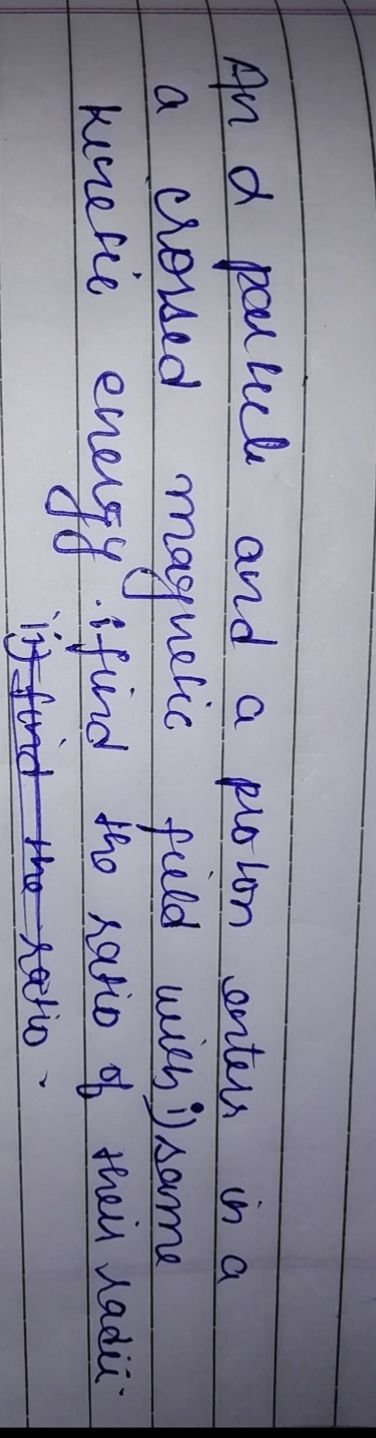 An α particle and a proton enters in a
a crossed magnetic field with i) same
kinetic energy. i find the ratio of their radii.
ii) find the ratio.